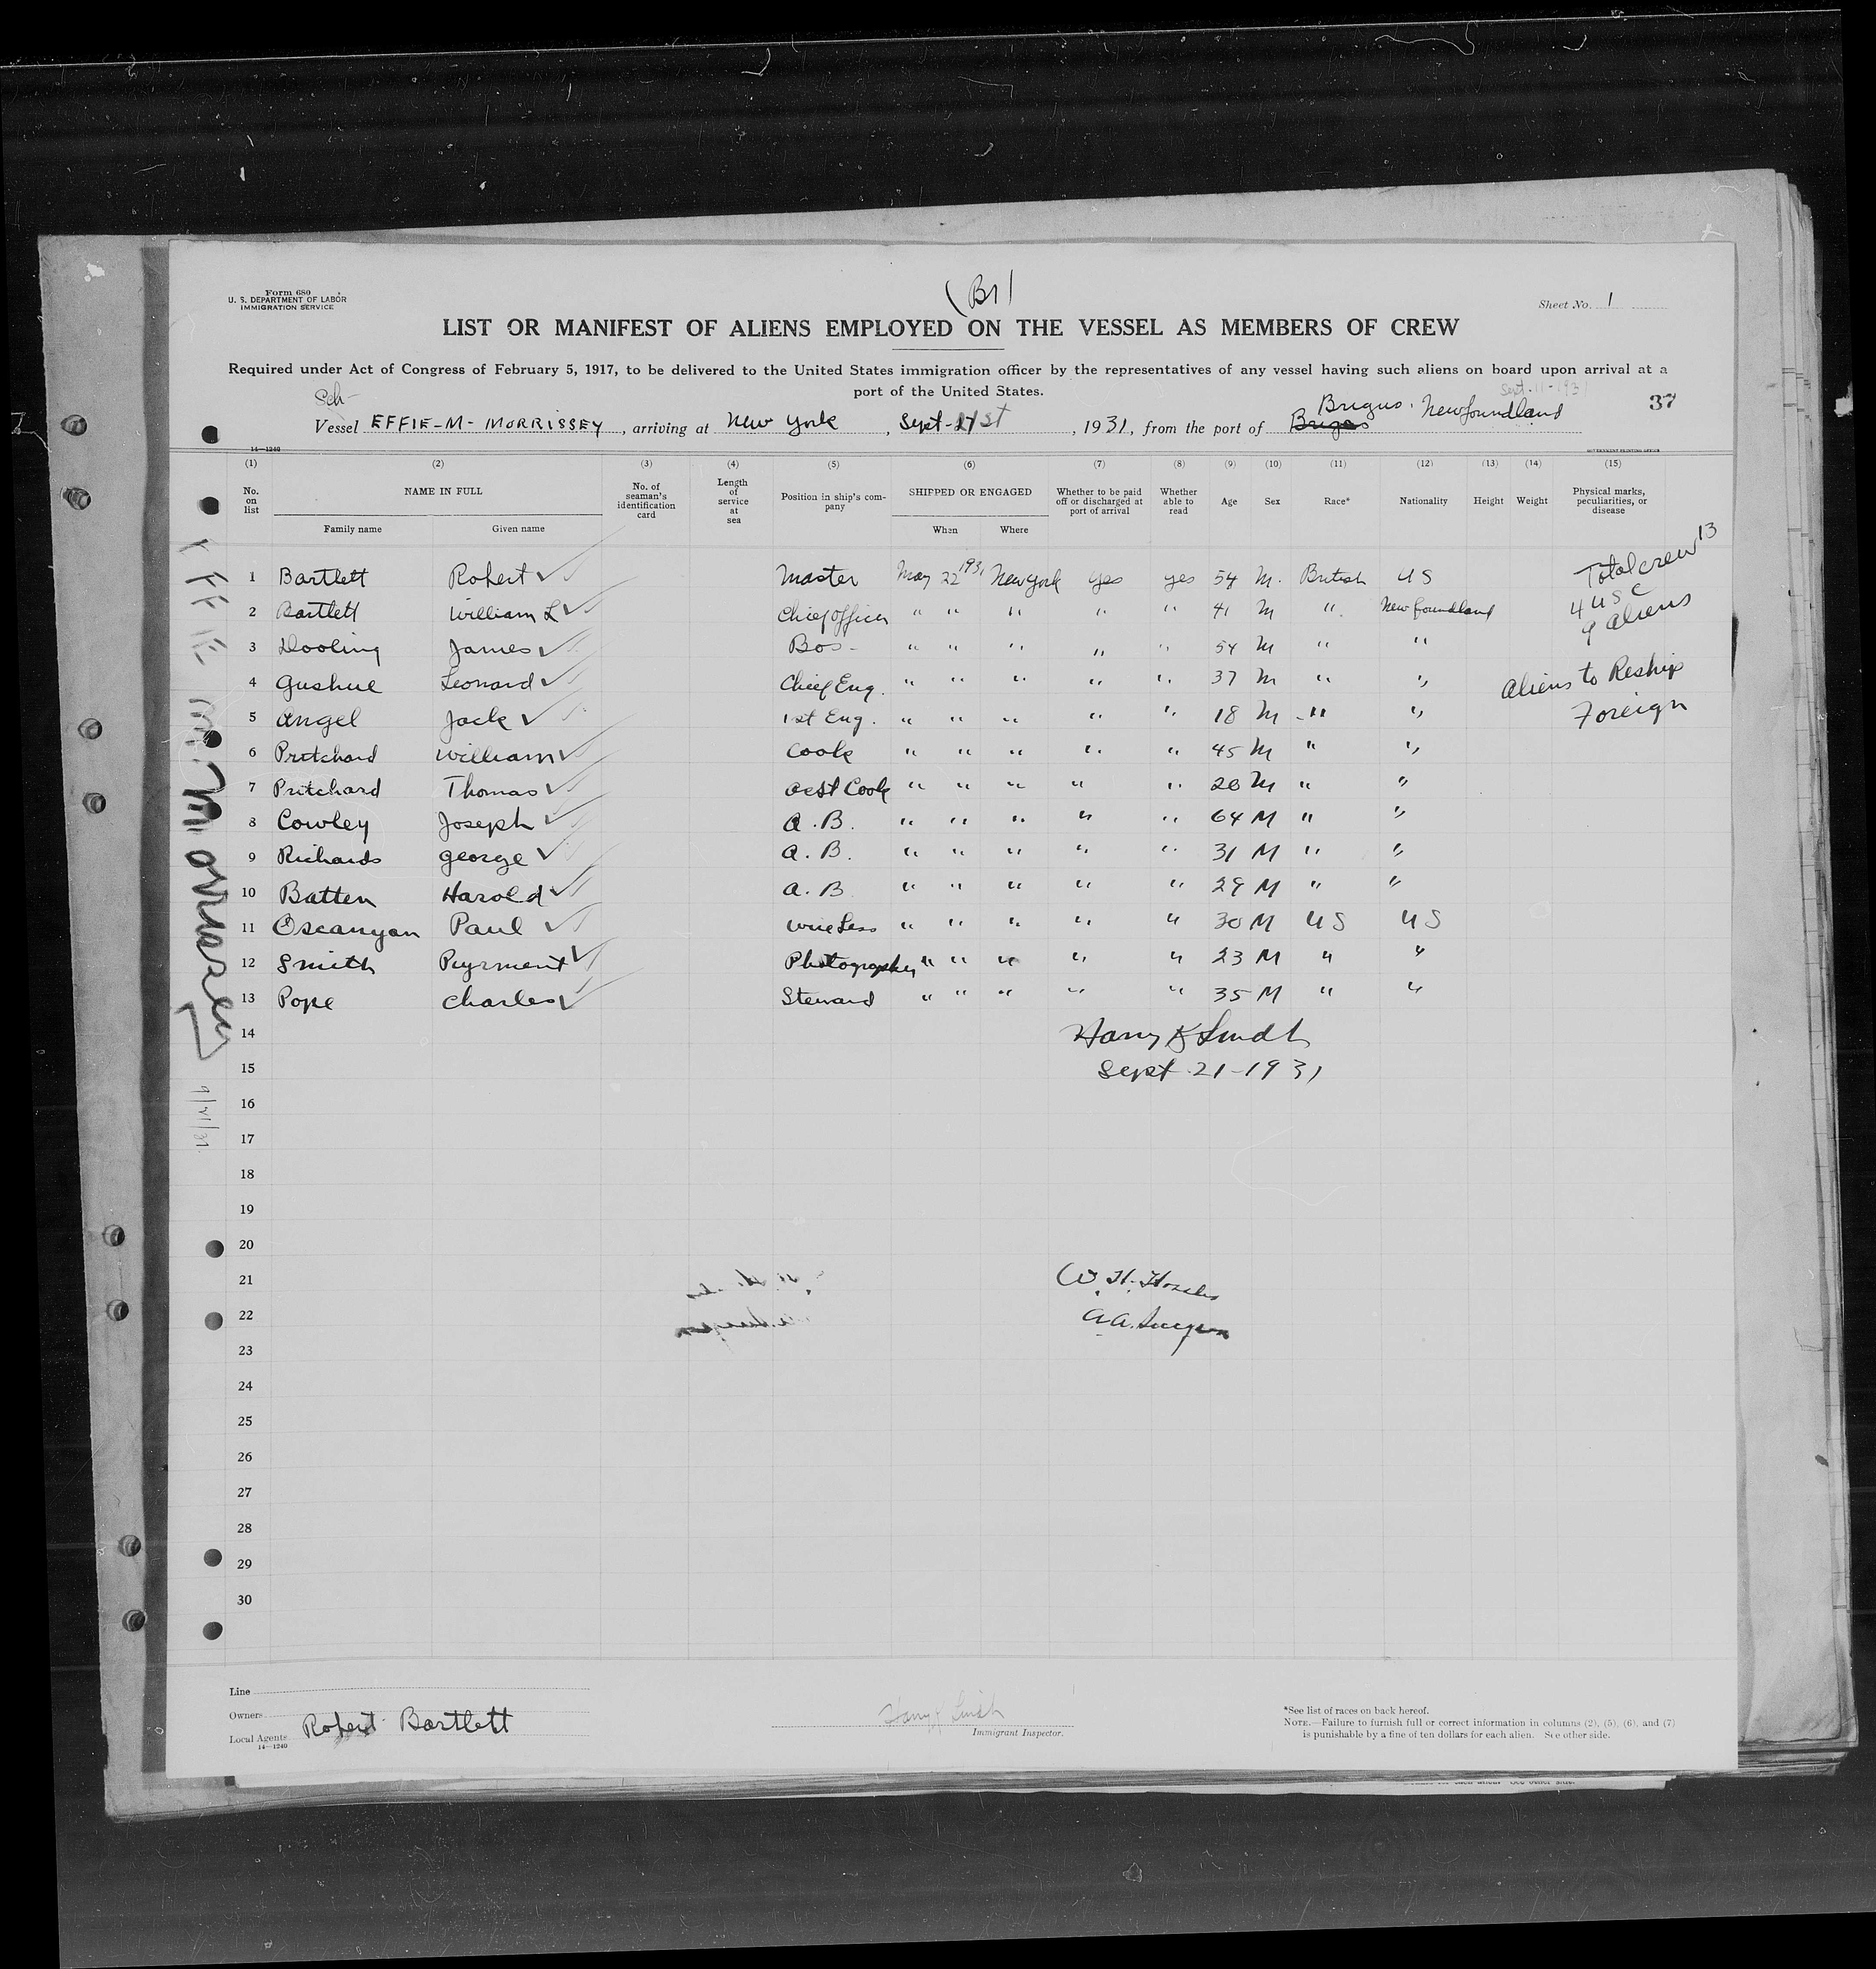 (B1)
Form 680
U. S. DEPARTMENT OF LABOR
IMMIGRATION SERVICE
Sheet No. 1
LIST OR MANIFEST OF ALIENS EMPLOYED ON THE VESSEL AS MEMBERS OF CREW
Required under Act of Congress of February 5, 1917, to be delivered to the United States immigration officer by the representatives of any vessel having such aliens on board upon arrival at a
port of the United States.
Sept. 11-1931
37
Sch
Brigus. Newfoundland
Vessel EFFIE-M-MORRISSEY, arriving at New York, Sept-21st, 1931, from the port of Brigas
14-1240
GOVERNMENT PRINTING OFFICE
(1) (2) (3) (4) (5) (6) (7) (8) (9) (10) (11) (12) (13) (14) (15)
No. on list NAME IN FULL Family name Given name No. of seaman's identification card Length of service at sea Position in ship's company SHIPPED OR ENGAGED When Where Whether to be paid off or discharged at port of arrival Whether able to read Age Sex Race* Nationality Height Weight Physical marks, peculiarities, or disease
1 Bartlett Robert ✓ Master May 22 1931 New York Yes yes 54 M. British US
Total crew 13
2 Bartlett William L ✓ Chief officer " " " " " 41 M " Newfoundland
4 USC
9 aliens
3 Dooling James ✓ Bos- " " " " " 54 M " "
4 Gushue Leonard ✓ Chief Eng. " " " " " 37 M " "
Aliens to Reship
Foreign
5 Angel Jack ✓ 1st Eng. " " " " " 18 M " "
6 Pritchard William ✓ Cook " " " " " 45 M " "
7 Pritchard Thomas ✓ Cook " " " " " 20 M " "
8 Cowley Joseph ✓ A.B. " " " " " 64 M " "
9 Richards George ✓ A.B. " " " " " 31 M " "
10 Batten Harold ✓ A.B " " " " " 29 M " "
11 Oscanyan Paul ✓ Wireless " " " " " 30 M US US
12 Smith ✓ Photographer " " " " " 23 M " "
13 Pope Charles ✓ Steward " " " " " 35 M " "
14
15 Sept 21-1931
16
17
18
19
20
21 W. H.
22 A.A. Surgeon
23
24
25
26
27
28
29
30
EFFIE M. Morrissey 9/21/31
Line
Owners
Local Agents Robert Bartlett
14-1240
Immigrant Inspector.
*See list of races on back hereof.
NOTE.—Failure to furnish full or correct information in columns (2), (5), (6), and (7)
is punishable by a fine of ten dollars for each alien. See other side.